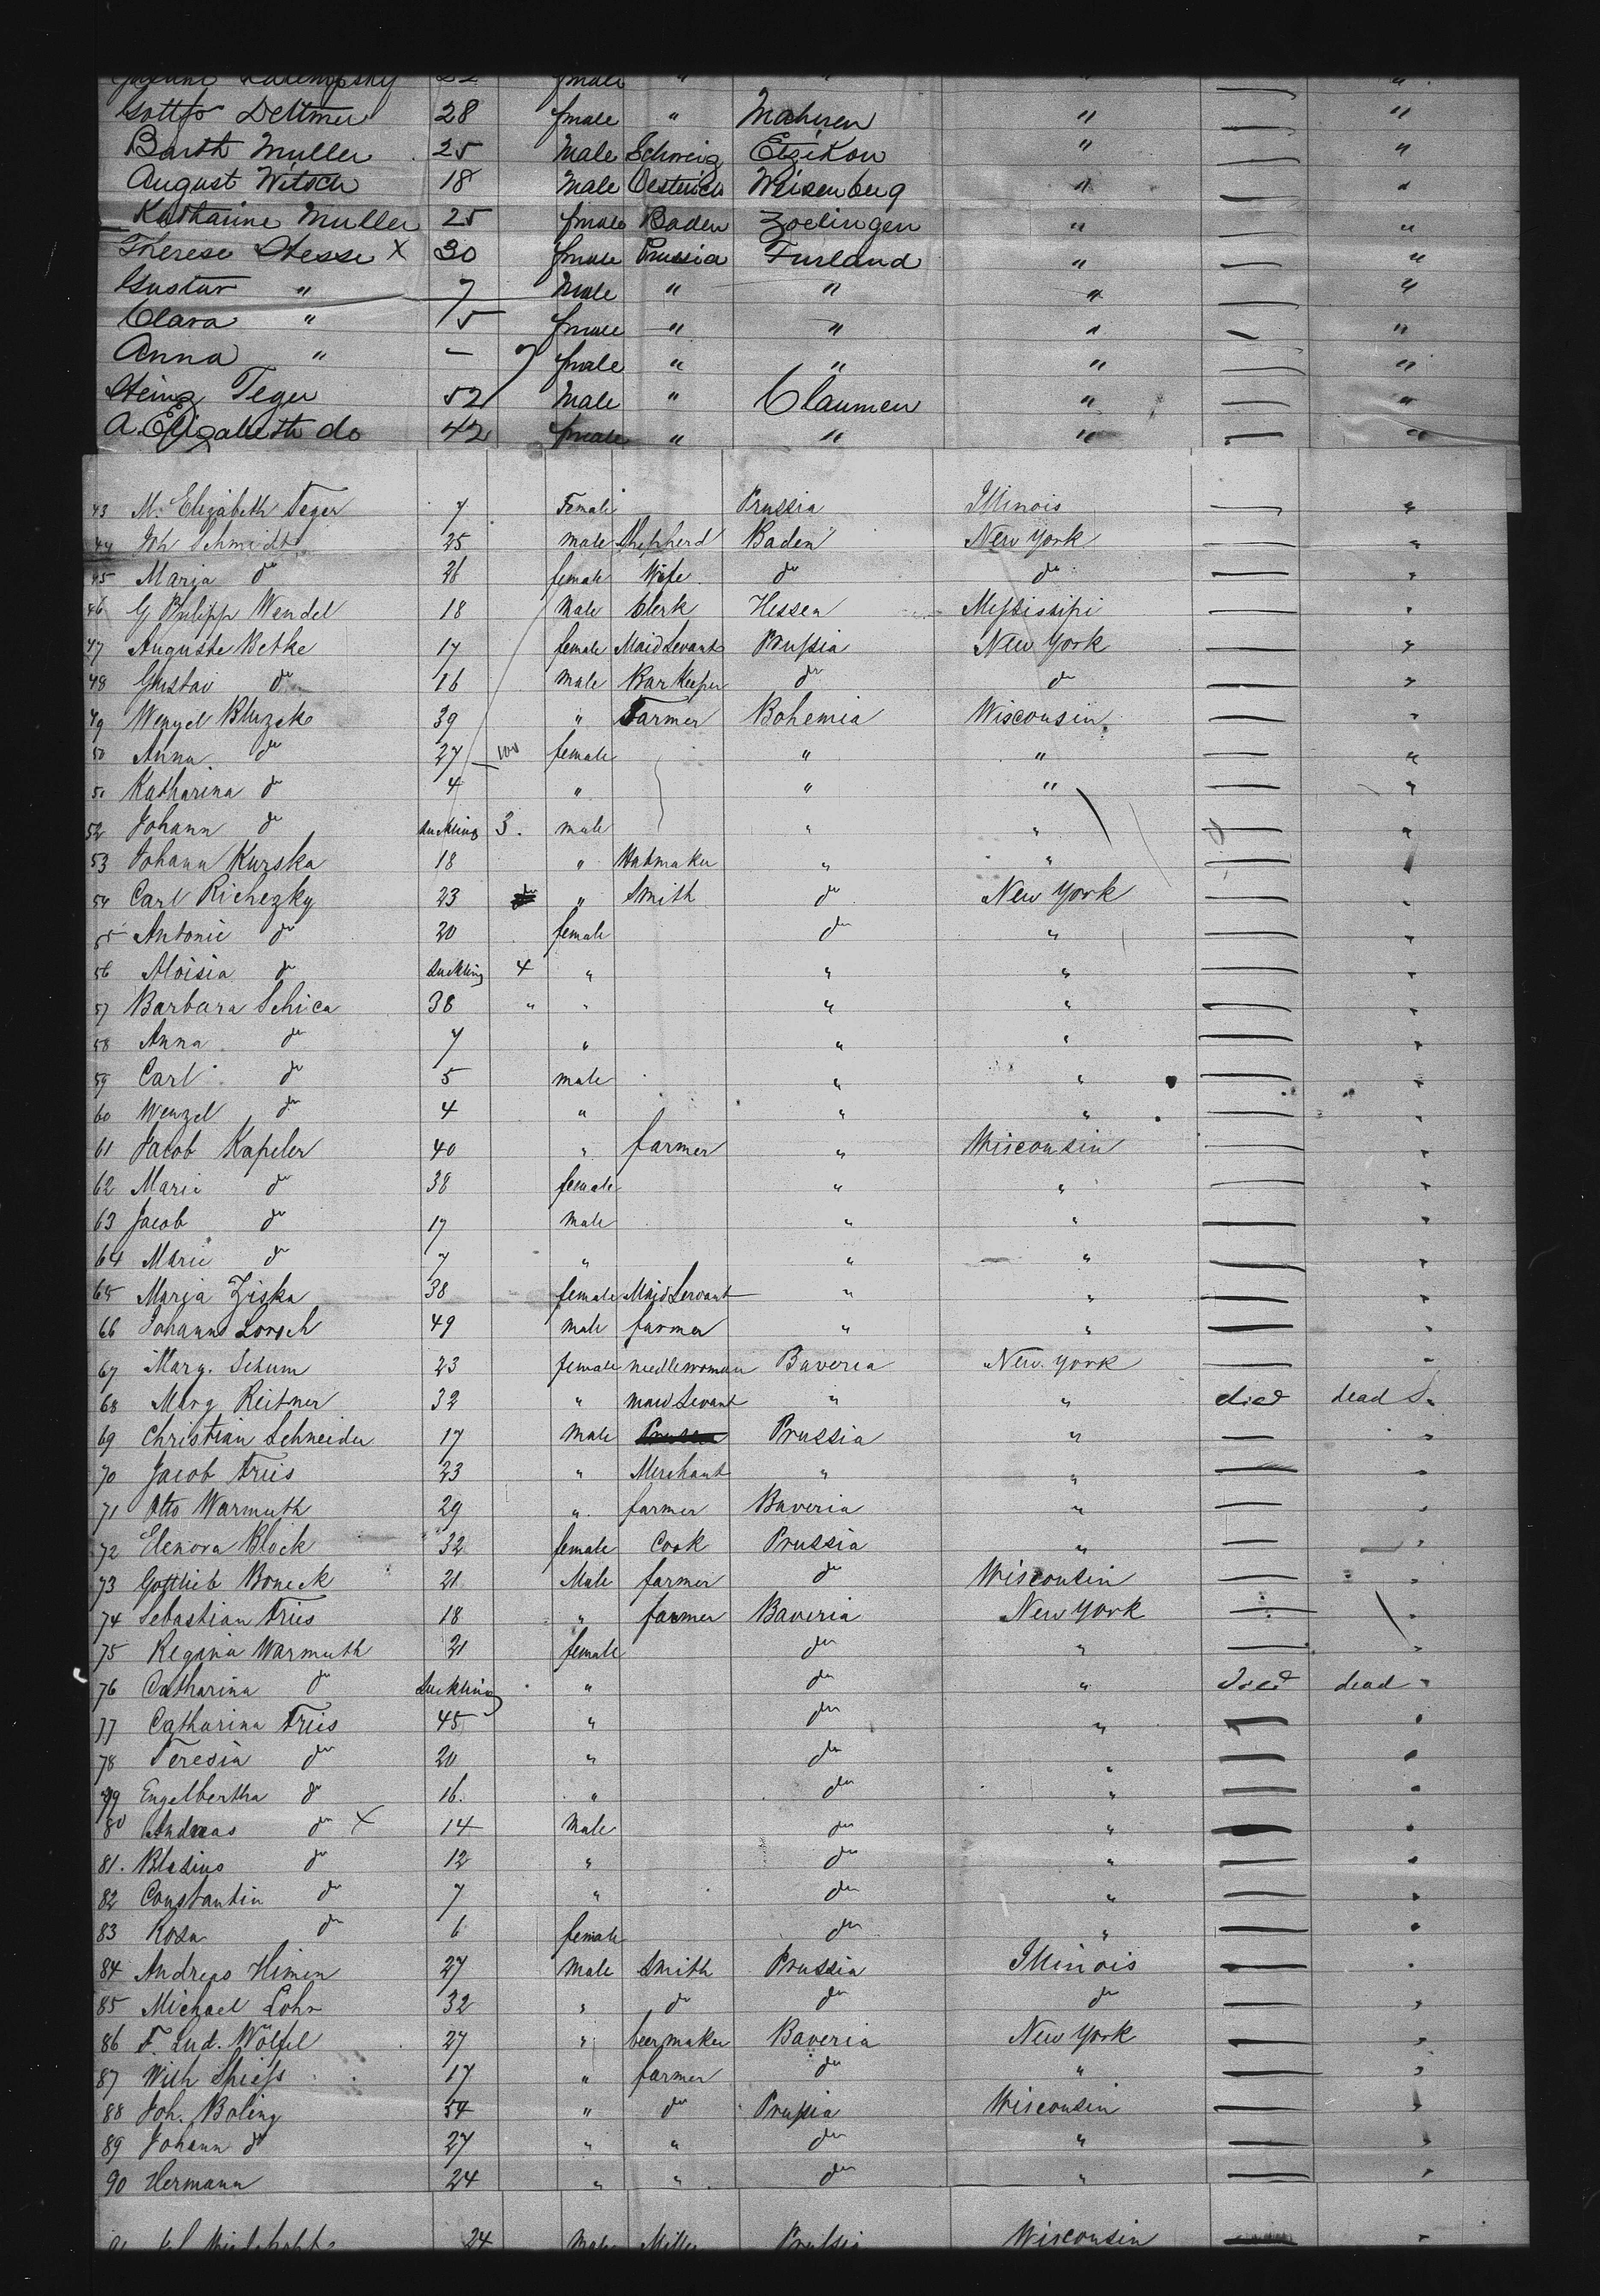 22 female " " " — "
Dettmer 28 female " Mahiren " — "
Barth Muller 25 Male Schweig Etzikon " — "
August Witsch 18 Male Oestreich Weisenberg " — "
Katharine Muller 25 female Baden Zoelingen " — "
Therese Hesse X 30 female Prussia Furland " — "
Gustav " 7 Male " " " — "
Clara " 5 female " " " — "
Anna " — 7 female " " " — "
Heinz Teger 52 Male " Claumen " — "
A. Elizabeth do 42 female " " " — "
43 M. Elizabeth Teger 7 Female Prussia Illinois — "
44 Joh Schmidt 25 male Shepherd Baden New York — "
45 Maria do 26 female Wife do do — "
46 G Philipp Wendel 18 Male Clerk Hessen Missisipi — "
47 Auguste Betke 17 female Maid Sevant Prussia New York — "
48 Gustav do 16 male Bar Keeper do do — "
49 Wenzel Bluzek 39 " Farmer Bohemia Wisconsin — "
50 Anna do 27 female " " — "
51 Katharina do 4 " " " — "
52 Johann do suckling 3. male " " — "
53 Johann Kurska 18 " Hatmaker " " —
54 Carl Richezky 23 " Smith do New York — "
55 Antonie do 20 female do " — "
56 Aloisia do Suckling 4 " " " — "
57 Barbara Schica 38 " " " " — "
58 Anna do 7 " " " — "
59 Carl do 5 male " " — "
60 Wenzel do 4 " " " — "
61 Jacob Kapeler 40 " farmer " Wisconsin — "
62 Marie do 38 female " " — "
63 Jacob do 17 Male " " — "
64 Marie do 7 " " " — "
65 Maria Ziska 38 female Maid Servant " " — "
66 Johann Lorsch 49 male farmer " " — "
67 Marg. Schum 23 female needlewoman Baveria New York — "
68 Marg Reitner 32 " maid Sevant " " died dead "
69 Christian Schneider 17 Male Prussia " — "
70 Jacob Fries 23 " Merchant " " — "
71 Otto Warmuth 29 " farmer Baveria " — "
72 Elenora Block 32 female Cook Prussia " — "
73 Gottlieb Boneck 21 Male farmer do Wisconsin — "
74 Sebastian Fries 18 " farmer Baveria New York — "
75 Regina Warmuth 21 female do " — "
76 Catharina do Suckling " do " died dead "
77 Catharina Fries 45 " do " — "
78 Teresia do 20 " do " — "
79 Engelbertha do 16. " do " — "
80 Andreas do X 14 Male do " — "
81. Blasius do 12 " do " — "
82 Constantin do 7 " do " — "
83 Rosa do 6 female do " — "
84 Andreas Himen 27 Male Smith Prussia Illinois — "
85 Michael Lohr 32 " do do do — "
86 F. Lud. Wölfel 27 " beermaker Baveria New York — "
87 Wilh Spiess 17 " farmer do " — "
88 Joh. Boling 54 " do Prussia Wisconsin — "
89 Johann do 27 " " do " — "
90 Hermann 24 " " do " — "
24 Male Miller Prussia Wisconsin — "